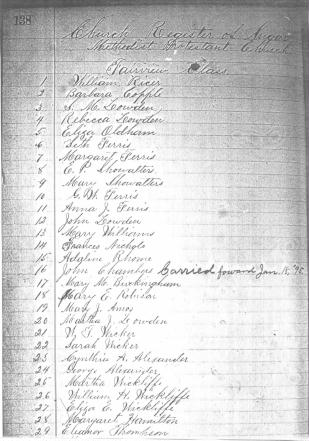 138
Church Register of Sugar
Methodist Protestant Church
Fairview Class
1 William Ricer
2 Barbara Copple
3 S. M. Lowden
4 Rebecca Lowden
5 Eliza Oldham
6 Seth Ferris
7 Margaret Ferris
8 E. P. Showalters
9 Mary Showalters
10 G. W. Ferris
11 Anna J. Ferris
12 John Lowden
13 Mary Williams
14 Frances Nichols
15 Adaline Rhome
16 John Chambers Carried forward Jan. 18, '95
17 Mary M. Buckingham
18 Mary E. Robison
19 Mary J. Amos
20 Martha J. Lowden
21 W. T. Wicker
22 Sarah Wicker
23 Cynthia A. Alexander
24 George Alexander
25 Martha Wickliffe
26 William H. Wickliffe
27 Eliza E. Wickliffe
28 Margaret Hamilton
29 Eleanor Thomason